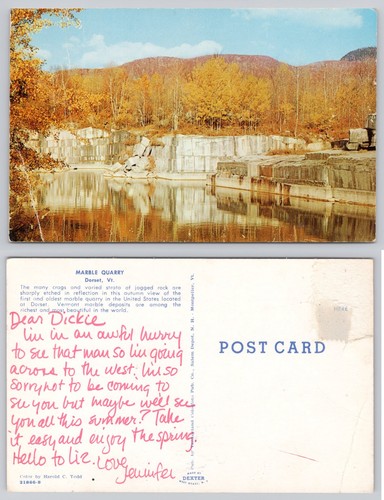 MARBLE QUARRY
Dorset, Vt.
The many crags and varied strata of jagged rock are
sharply etched in reflection in this autumn view of the
first and oldest marble quarry in the United States located
in Dorset. Vermont marble deposits are among the
richest and most beautiful in the world.
Dear Dickie
I'm in an awful hurry
to see that man so I'm going
across to the west. I'm so
sorry not to be coming to
see you but maybe we'll see
you all this summer? Take
it easy and enjoy the spring.
Hello to Liz. Love
Jennifer
Color by Harold C. Todd
21860-B
POST CARD
MADE BY
DEXTER